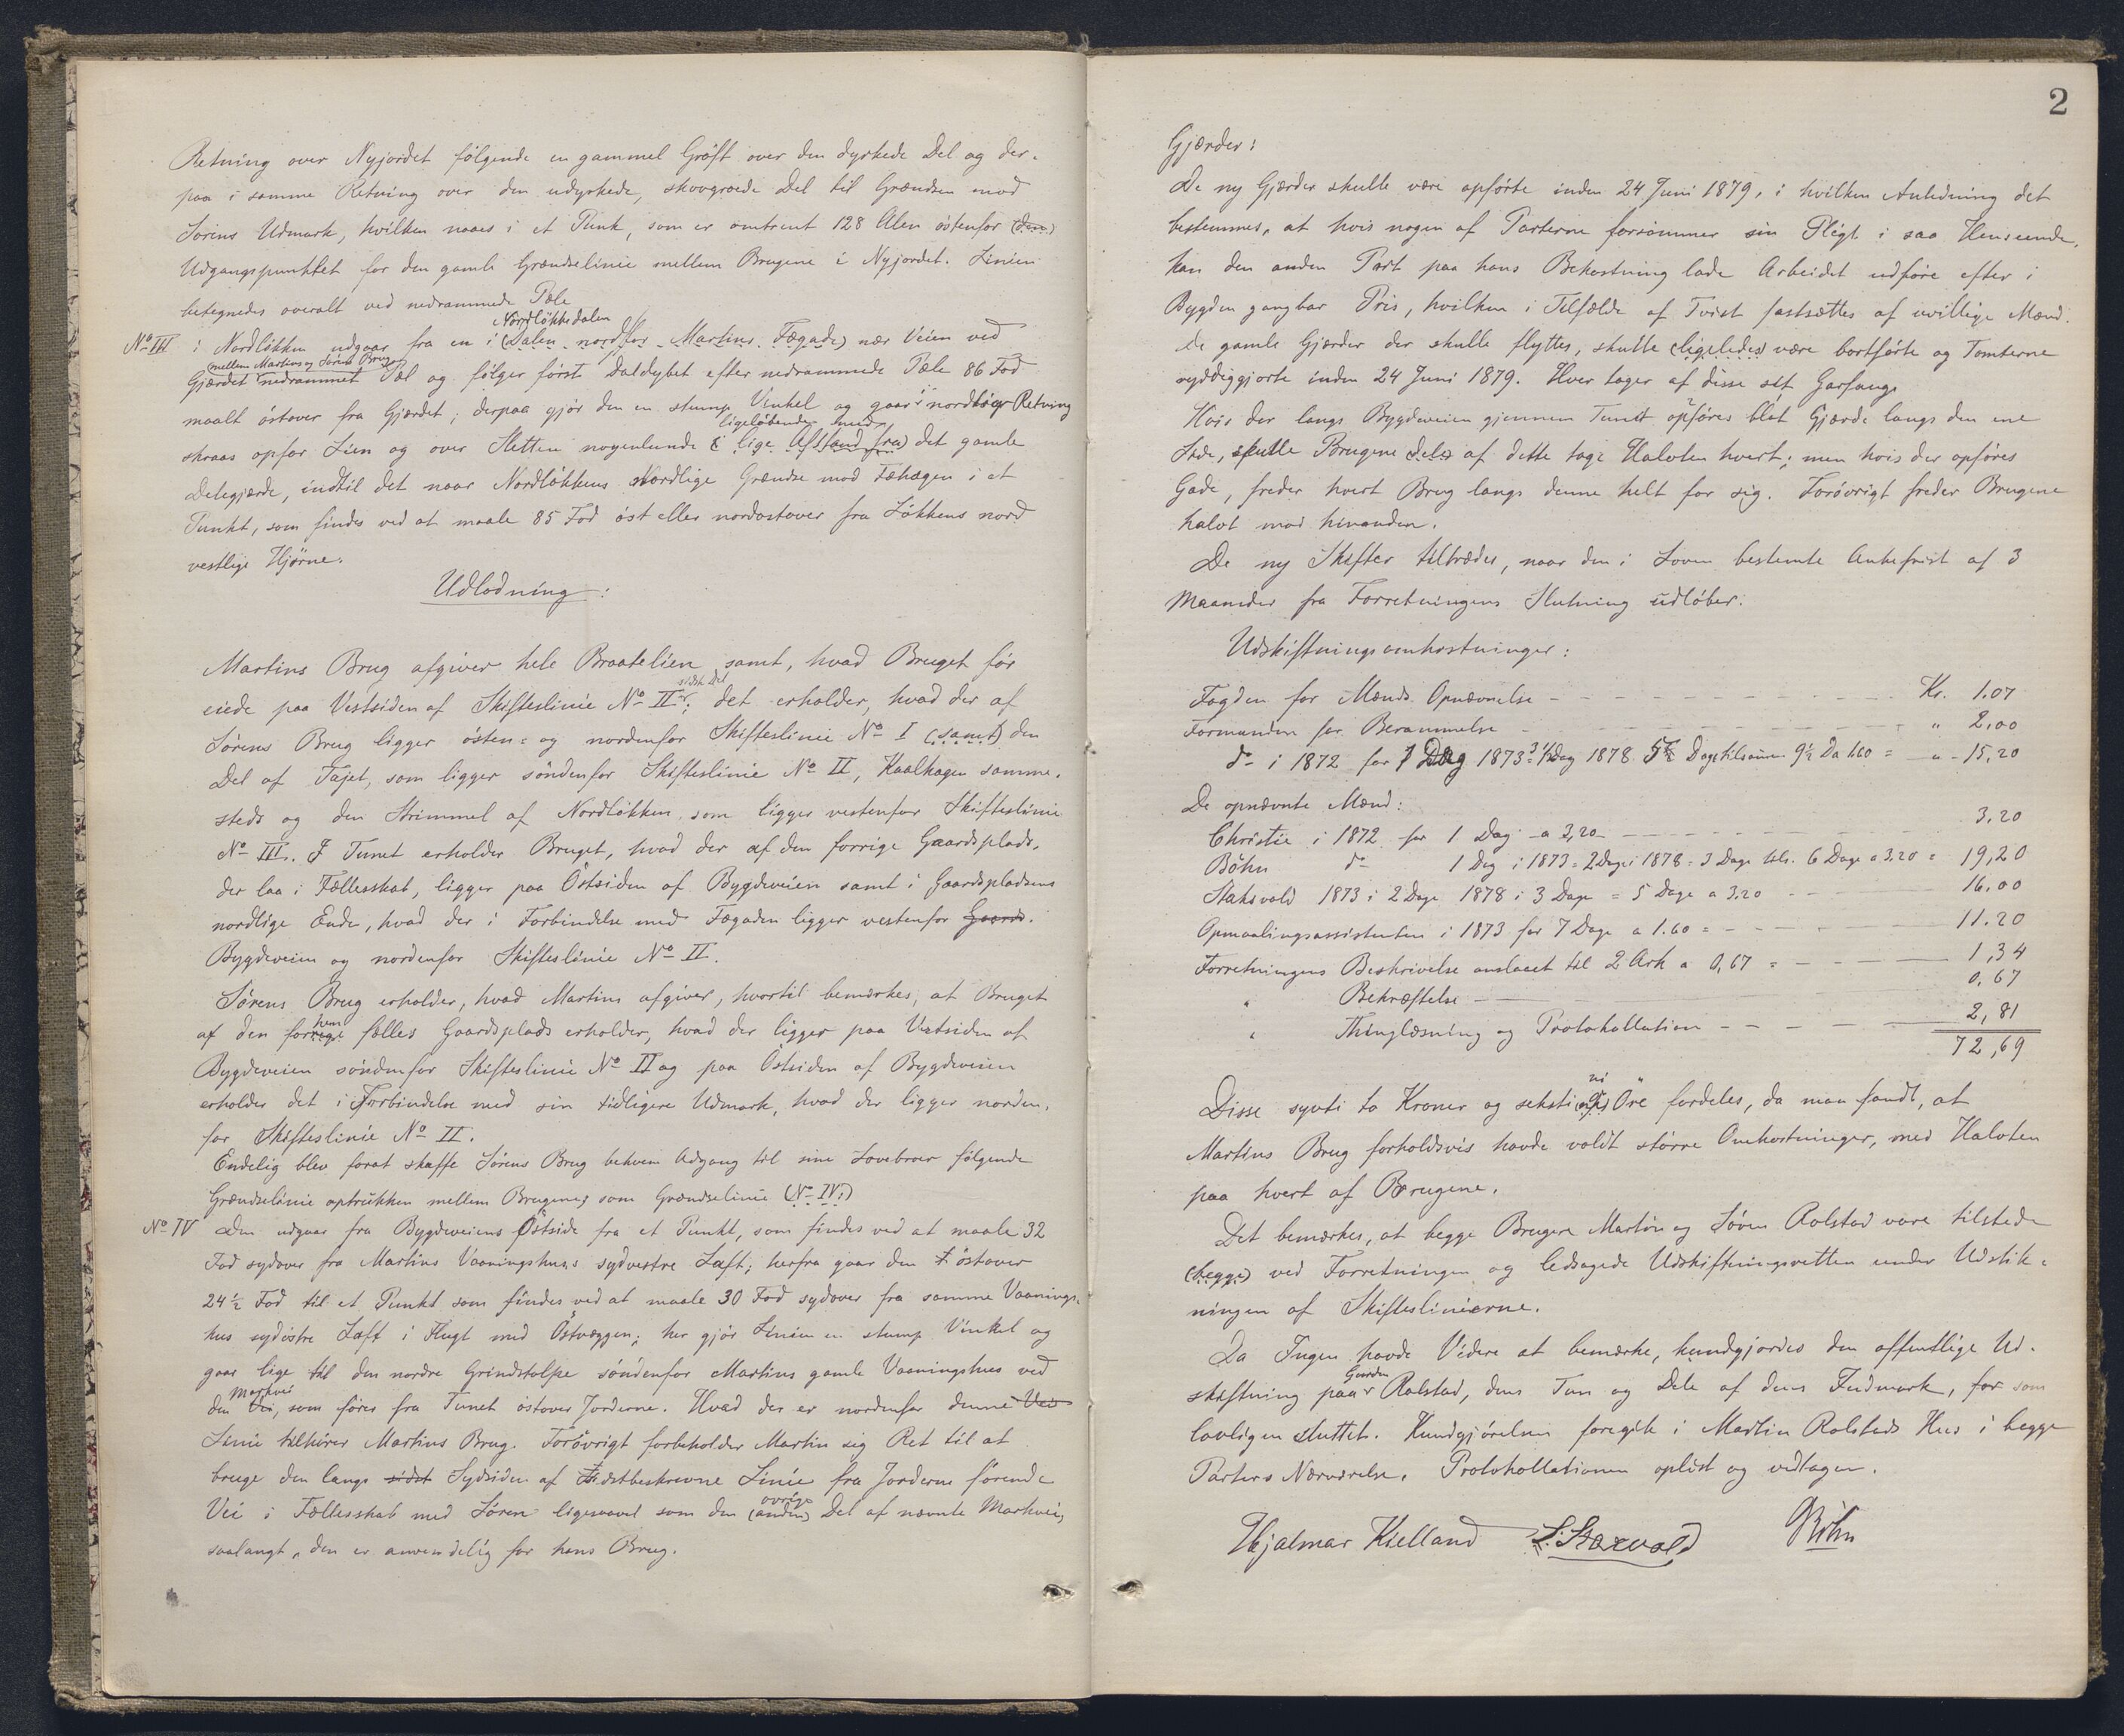 Retning over Nyjordet følgende en gammel Grøft over den dyrkede Del og der-
paa i samme Retning over den udyrkede, skovgroede Del til Grændsen mod
Sørens Udmark, hvilken naaes i et Punk, som er omtrent 128 Alen østenfor (den)
Udgangspunktet for den gamle Grændselinie mellem Brugene i Nyjordet. Linien
betegnedes overalt ved nedrammede Pæle
Nordløkkedalen
No III i Nordløkken udgaar fra en i (Dalen nordfor Martins Fægade) nær Veien ved
mellem Martins og Sørens Brug
Gjærdet nedrammet Pæl og følger først Daldybet efter nedrammede Pæle 86 Fod
maalt østover fra Gjærdet; derpaa gjør den en stump Vinkel og gaar i nordlig Retning
ligeløbende med
skraas opfor Lien og over Sletten nogenlunde (i lige Afstand fra) det gamle
Delegjærde, indtil det naar Nordløkkens nordlige Grændse mod Fæhagen i et
Punkt, som findes ved at maale 85 Fod øst eller nordostover fra Løkkens nord
vestlige Hjørne.
Udlodning:
Martins Brug afgiver hele Braatelien samt, hvad Bruget før
sidste Del
eiede paa Vestsiden af Skifteslinie No II; det erholder, hvad der af
Sørens Brug ligger østen- og nordenfor Skifteslinie No I (samt) den
Del af Tajet, som ligger søndenfor Skifteslinie No II, Kaalhagen samme-
steds og den Strimmel af Nordløkken, som ligger vestenfor Skifteslinie
No III. I Tunet erholder Bruget, hvad der af den forrige Gaardsplads,
der laa i Fællesskab, ligger paa Østsiden af Bygdeveien samt i Gaardspladsens
nordlige Ende, hvad der i Forbindelse med Fægaden ligger vestenfor Gaards.
Bygdeveien og nordenfor Skifteslinie No II.
Sørens Brug erholder, hvad Martins afgiver, hvortil bemærkes, at Bruget
af den forrige fælles Gaardsplads erholder, hvad der ligger paa Vestsiden af
Bygdeveien søndenfor Skifteslinie No II og paa Østsiden af Bygdeveien
erholder det i Forbindelse med sin tidligere Udmark, hvad der ligger norden-
for Skifteslinie No II.
Endelig blev forat skaffe Sørens Brug bekvem Adgang til sine Lovebroer følgende
Grændselinie optrukken mellem Brugene, som Grændselinie (No IV:)
No IV Den udgaar fra Bygdeveiens Østside fra et Punkt, som findes ved at maale 32
Fod sydover fra Martins Vaaningshuses sydvestre Laft; herfra gaar den østover
24 1/2 Fod til et Punkt som findes ved at maale 30 Fod sydover fra samme Vaanings-
hus sydøstre Laft i Flugt med Østvæggen; her gjør Linien en stump Vinkel og
gaar lige til den nordre Grindstolpe søndenfor Martins gamle Vaaningshus ved
Markvei
den Vei, som fører fra Tunet østover Jorderne. Hvad der er nordenfor denne Vei
Linie tilhører Martins Brug. Forøvrigt forbeholder Martin sig Ret til at
bruge den langs sidst Sydsiden af sidstbeskrevne Linie fra Jorderne førende
øvrige
Vei i Fællesskab med Søren ligesaavel som den (anden) Del af nævnte Markvei,
saalangt, den er anvendelig for hans Brug.
2
Gjærder:
De ny Gjærder skulle være opførte inden 24 Juni 1879, i hvilken Anledning det
bestemmes, at hvis nogen af Parterne forsømmer sin Pligt i saa Henseende,
kan den anden Part paa hans Bekostning lade Arbeidet udføre efter i
Bygden gangbar Pris, hvilken i Tilfælde af Tvist fastsættes af uvillige Mænd.
De gamle Gjærder der skulle flyttes, skulle (ligeledes) være bortførte og Tomterne
ryddiggjorte inden 24 Juni 1879. Hver tager af disse sit Garfang.
Hvis der langs Bygdeveien gjennem Tunet opføres blot Gjærde langs den ene
Side, skulle Brugene (dele) af dette tage Halvten hvert; men hvis der opføres
Gade, freder hvert Brug langs denne helt for sig. Forøvrigt freder Brugene
halvt mod hinanden.
De ny Skifter tiltrædes, naar den i Loven bestemte Ankefrist af 3
Maaneder fra Forretningens Slutning udløber.
Udskiftningsomkostninger:
Fogden for Mænds Opnævnelse - Kr. 1.07
Formanden for Berammelse - " 2,00
do i 1872 for 1 Dag 1873 3 1/2 Dag 1878 5 Dage tilsammen 9 1/2 Da 1.60 = " 15,20
De opnævnte Mænd:
Christie i 1872 for 1 Dag a 3,20 - 3,20
Bøhn do 1 Dag i 1873 = 2 Dage i 1878 = 3 Dage tils. 6 Dage a 3.20 = 19,20
Staksvold 1873 i 2 Dage 1878 i 3 Dage = 5 Dage a 3.20 - 16.00
Opmaalingsassistenten i 1873 for 7 Dage a 1.60 = - 11.20
Forretningens Beskrivelse anslaaet til 2 Ark a 0,67 = - 1,34
" Bekræftelse - 0,67
" Thinglæsning og Protokollation - 2,81
72,69
ni
Disse sytti to Kroner og seksti Øre fordeles, da man fandt, at
Martins Brug forholdsvis havde voldt større Omkostninger, med Halvten
paa hvert af Brugene.
Det bemærkes, at begge Brugere Martin og Søren Rolstad vare tilstede
(begge) ved Forretningen og ledsagede Udskiftningsretten under Udstik-
ningen af Skifteslinierne.
Da Ingen havde Videre at bemærke, kundgjordes den offentlige Ud-
Gaarden
skiftning paa Rolstad, dens Tun og Dele af dens Indmark, for som
lovligen sluttet. Kundgjørelsen foregik i Martin Rolstads Hus i begge
Parters Nærværelse. Protokollationen oplæst og vedtagen.
Hjalmar Kielland S. Staxvold Bøhn